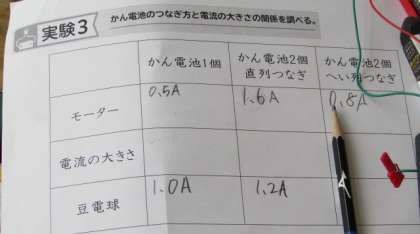 実験3
かん電池のつなぎ方と電流の大きさの関係を調べる。
かん電池1個
かん電池2個
直列つなぎ
かん電池2個
へい列つなぎ
モーター
0.5A
1.6A
0.8A
電流の大きさ
豆電球
1.0A
1.2A